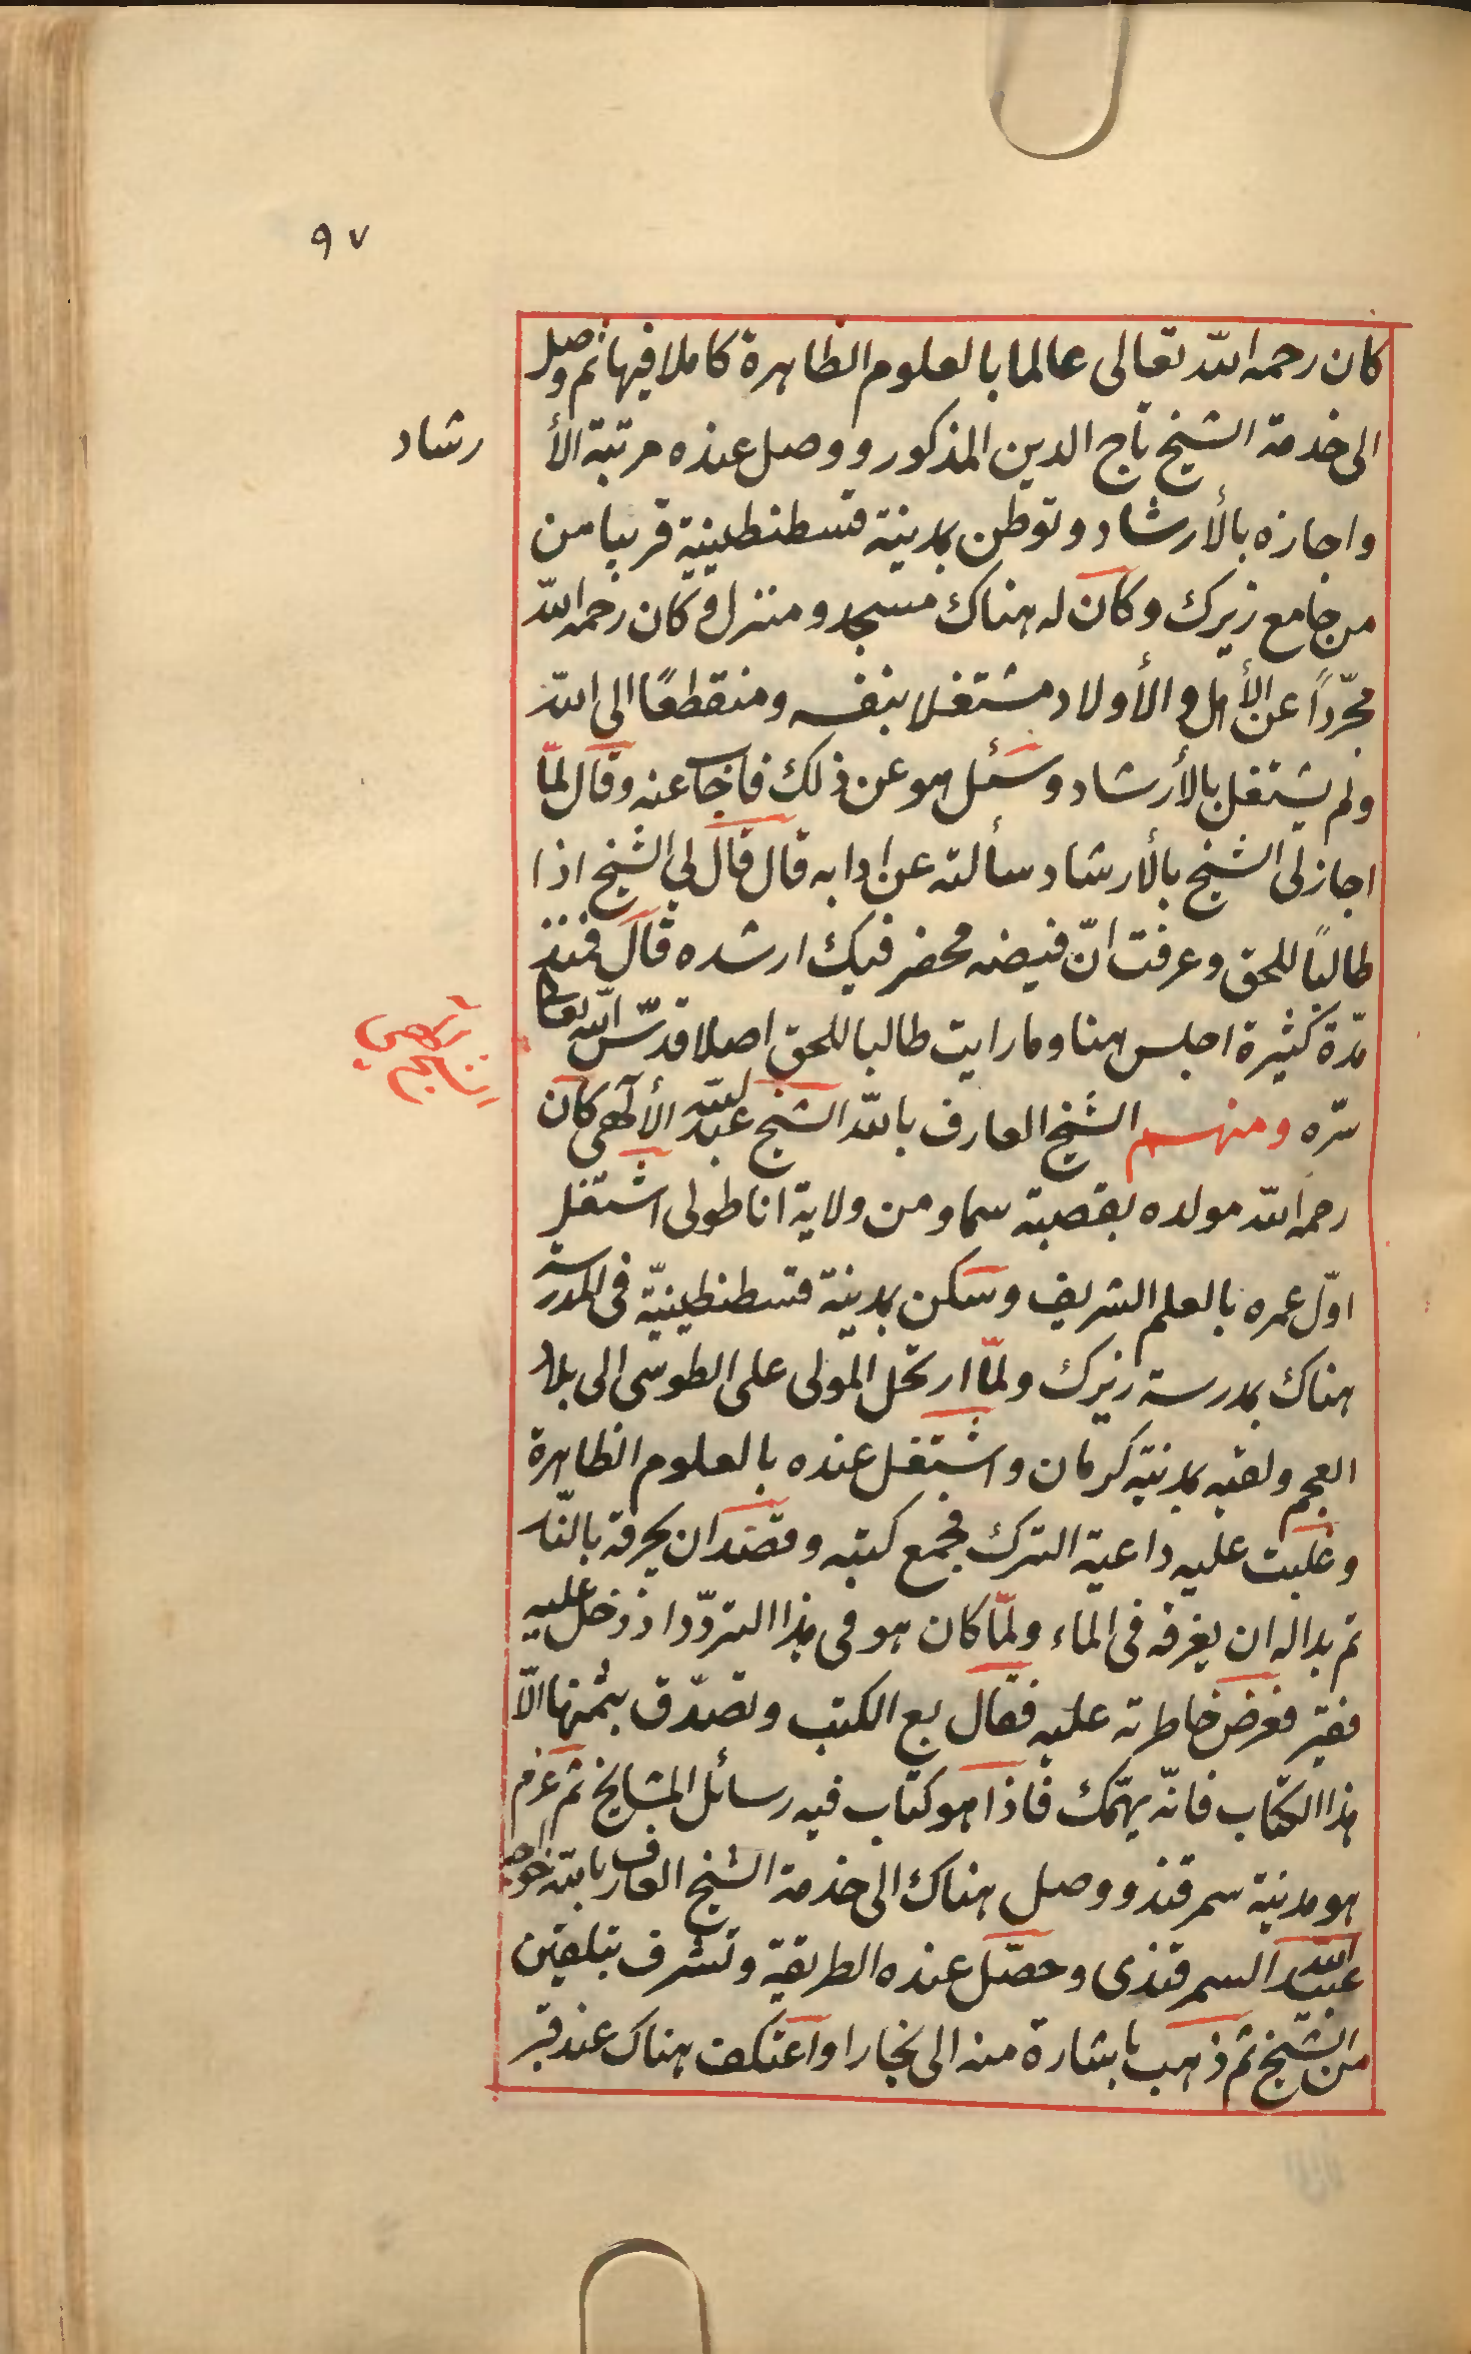 ٩٧
كان رحمه الله تعالى عالما بالعلوم الظاهرة كاملا فيها ثم وصل
الى خدمة الشيخ تاج الدين المذكور ووصل عنده مرتبة الأ
رشاد
واجازه بالأرشاد وتوطن بمدينة قسطنطينية قريبا من
من جامع زيرك وكان له هناك مسجد ومنزل وكان رحمه الله
مجرّداً عن الأهل والأولاد مشتغلا بنفسه ومنقطعًا الى الله
ولم يشتغل بالأرشاد وسئل هو عن ذلك فاجاب عنه وقال لمّا
اجاز لى الشيخ بالأرشاد سألته عن ادابه قال قال لي الشيخ اذا
طالبًا للحق وعرفت انّ فيضه محضر فيك ارشده قال فمنذ
مدّة كثيرة اجلس هنا وما رايت طالبا للحق اصلا قدّس الله تعالى
سرّه ومنهم الشيخ العارف بالله الشيخ عبد الله الألهى كان
الهى
رحمه الله مولده بقصبة سماو من ولاية اناطولى اشتغل
اوّل عمره بالعلم الشريف وسكن بمدينة قسطنطينيّة فى المدرسة
هناك بمدرسة زيرك ولمّا ارتحل المولى على الطوسى الى بلاد
العجم ولقيه بمدينة كرمان واشتغل عنده بالعلوم الظاهرة
وغلبت عليه داعية الترك فجمع كتبه وقصد ان يحرقه بالنّار
ثم بدا له ان يغرقه فى الماء ولمّا كان هو فى هذا التردّد اذ دخل عليه
فقير فعرض خاطرته عليه فقال بع الكتب وتصدّق بثمنها الّا
هذا الكتاب فانّه يهمّك فاذا هو كتاب فيه رسائل المشايخ ثم عزم
هو مدينة سمرقند ووصل هناك الى خدمة الشيخ العارف بالله خواجه
عبيد الله السمرقندى وحصّل عنده الطريقة وتشرف بتلقين
من الشيخ ثم ذهب بابشارة منه الى بخارا واعتكف هناك عند قبر